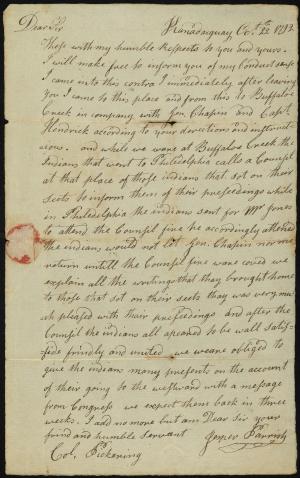 Dear Sir Kanadaiquay Oct. 22 1793
These with my humble Respects to you and yours.
I will make free to inform you of my Conduct since
I came into this contra I immediately after leaving
You I came to this place and from this to Buffaloe
Creek in company with Gen. Chapin and Capt.
Hendrick according to your directions and instruct
ions. and while we ware at Buffaloe Creek the
Indians that went to Philadelphia calls a Counsel
at that place of those indians that sot on their
seets to inform them of their preseedings while
in Philadelphia the indians sent for Mr Jones
to attend the Counsel fire he accordingly attend
the indians would not let Gen. Chapin nor me
return untill the Counsel fire ware coverd we
explain all the writings that they brought home
to those that sot on their seets thay was very mu
ch pleased with their preseedings and after the
Counsel the indians all apeared to be wall satis
fide frindly and united we weare obliged to
give the indians many presents on the account
of their going to the westward with a message
from Congress we expect them back in three
weeks. I add no more but am Dear Sir your
frind and humble servant Jasper Parrish
Col. Pickering